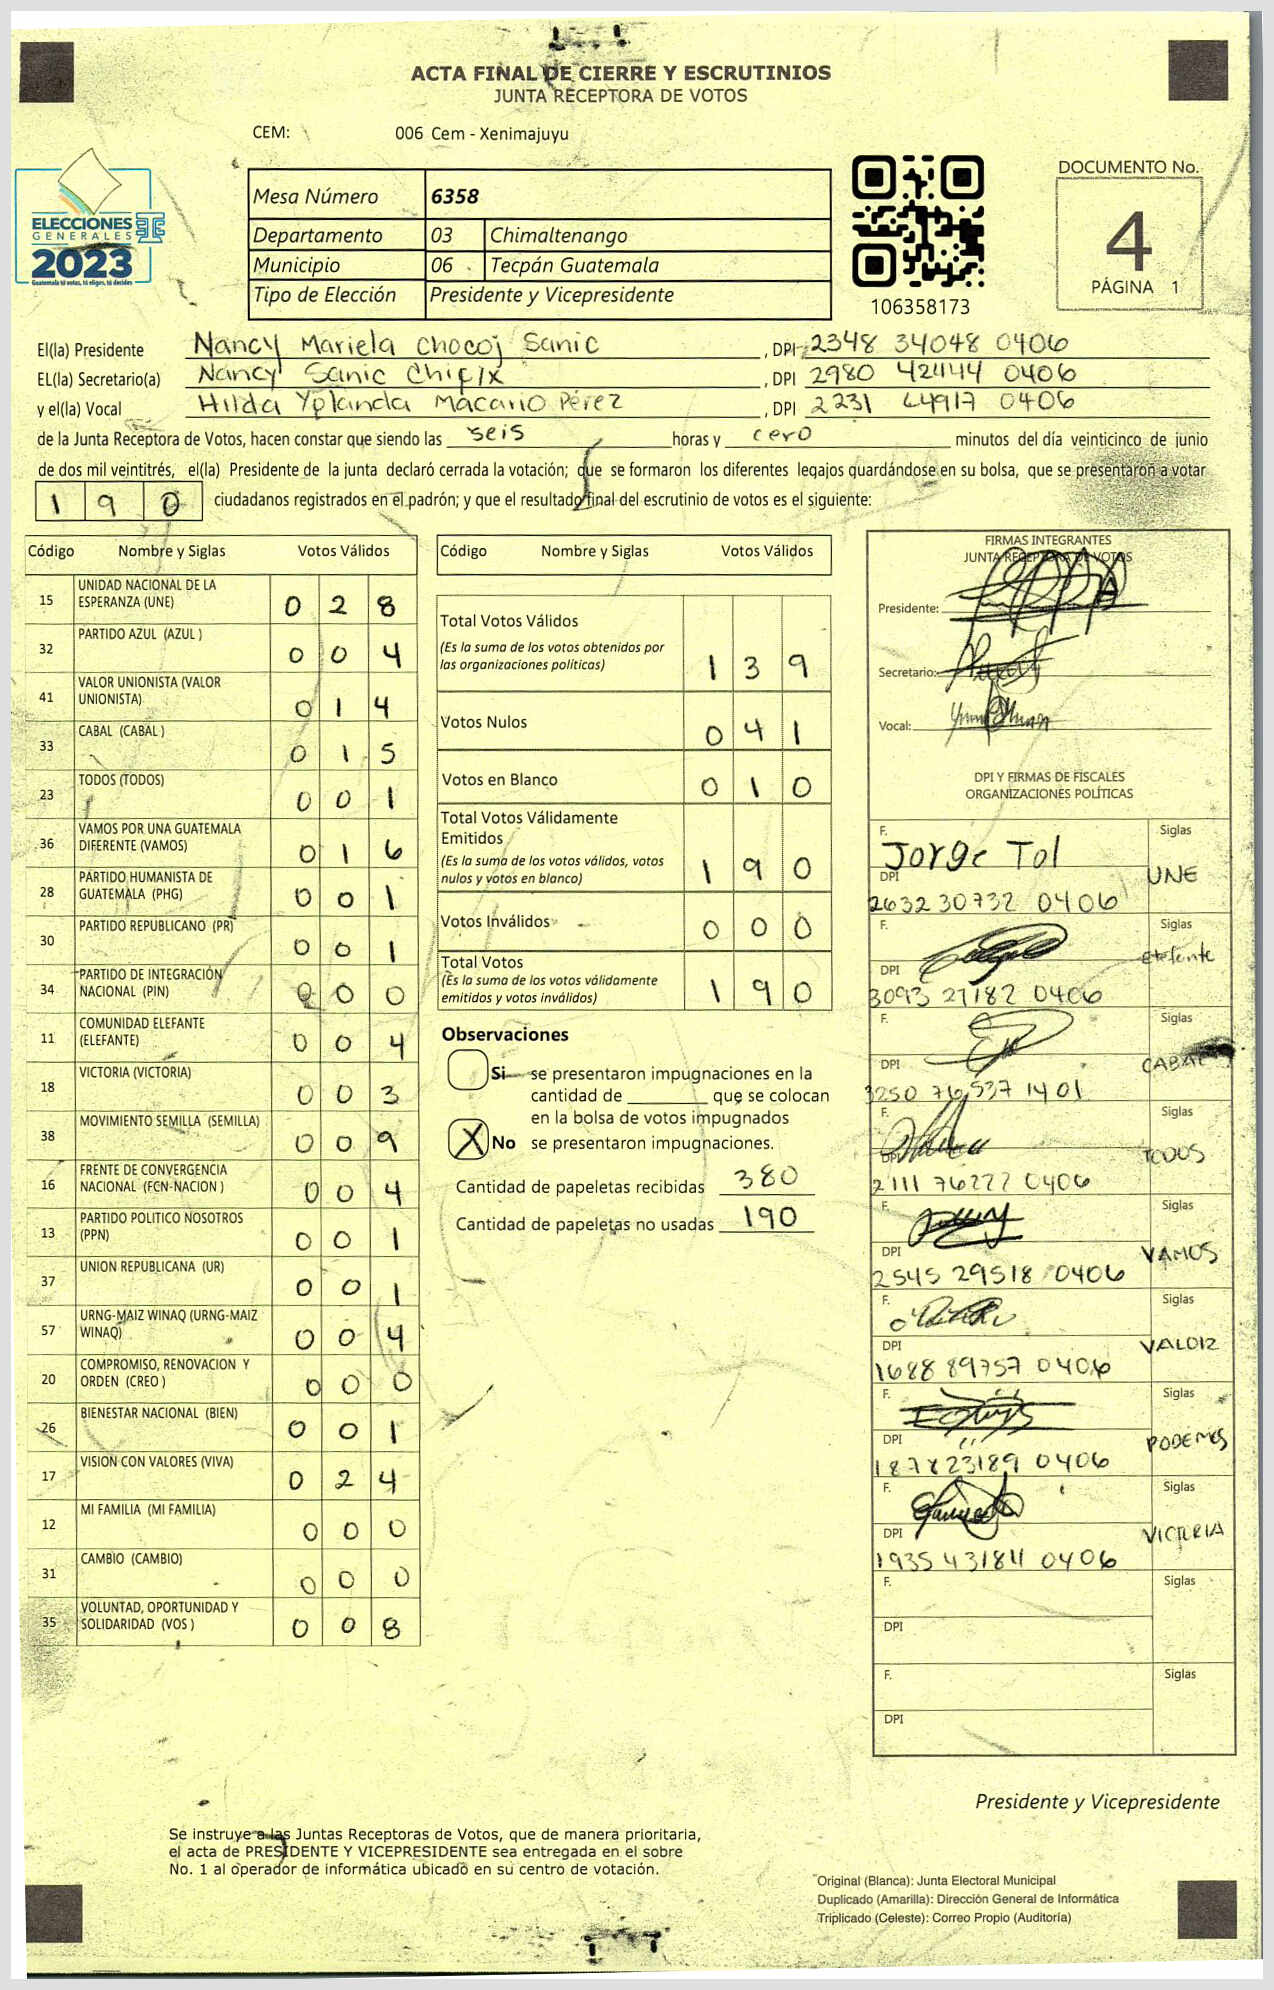 ACTA FINAL DE CIERRE Y ESCRUTINIOS
JUNTA RECEPTORA DE VOTOS
CEM: 006 Cem - Xenimajuyu
ELECCIONES
GENERALES
2023
Guatemala tú votas, tú eliges, tú decides
Mesa Número 6358
Departamento 03 Chimaltenango
Municipio 06 Tecpán Guatemala
Tipo de Elección Presidente y Vicepresidente
106358173
DOCUMENTO No.
4
PÁGINA 1
El(la) Presidente Nancy Mariela Chocoj Sanic , DPI 2348 34048 0406
EL(la) Secretario(a) Nancy Sanic Chipix , DPI 2980 42444 0406
y el(la) Vocal Hilda Yolanda Macario Pérez , DPI 2231 64917 0406
de la Junta Receptora de Votos, hacen constar que siendo las seis horas y cero minutos del día veinticinco de junio
de dos mil veintitrés, el(la) Presidente de la junta declaró cerrada la votación; que se formaron los diferentes legajos guardándose en su bolsa, que se presentaron a votar
190 ciudadanos registrados en el padrón; y que el resultado final del escrutinio de votos es el siguiente:
Código Nombre y Siglas Votos Válidos
15 UNIDAD NACIONAL DE LA ESPERANZA (UNE) 0 2 8
32 PARTIDO AZUL (AZUL ) 0 0 4
41 VALOR UNIONISTA (VALOR UNIONISTA) 0 1 4
33 CABAL (CABAL ) 0 1 5
23 TODOS (TODOS) 0 0 1
36 VAMOS POR UNA GUATEMALA DIFERENTE (VAMOS) 0 1 6
28 PARTIDO HUMANISTA DE GUATEMALA (PHG) 0 0 1
30 PARTIDO REPUBLICANO (PR) 0 0 1
34 PARTIDO DE INTEGRACIÓN NACIONAL (PIN) 0 0 0
11 COMUNIDAD ELEFANTE (ELEFANTE) 0 0 4
18 VICTORIA (VICTORIA) 0 0 3
38 MOVIMIENTO SEMILLA (SEMILLA) 0 0 9
16 FRENTE DE CONVERGENCIA NACIONAL (FCN-NACION ) 0 0 4
13 PARTIDO POLITICO NOSOTROS (PPN) 0 0 1
37 UNION REPUBLICANA (UR) 0 0 1
57 URNG-MAIZ WINAQ (URNG-MAIZ WINAQ) 0 0 4
20 COMPROMISO, RENOVACION Y ORDEN (CREO ) 0 0 0
26 BIENESTAR NACIONAL (BIEN) 0 0 1
17 VISION CON VALORES (VIVA) 0 2 4
12 MI FAMILIA (MI FAMILIA) 0 0 0
31 CAMBIO (CAMBIO) 0 0 0
35 VOLUNTAD, OPORTUNIDAD Y SOLIDARIDAD (VOS ) 0 0 8
Código Nombre y Siglas Votos Válidos
Total Votos Válidos
(Es la suma de los votos obtenidos por
las organizaciones políticas) 1 3 9
Votos Nulos 0 4 1
Votos en Blanco 0 1 0
Total Votos Válidamente
Emitidos
(Es la suma de los votos válidos, votos
nulos y votos en blanco) 1 9 0
Votos Inválidos 0 0 0
Total Votos
(Es la suma de los votos válidamente
emitidos y votos inválidos) 1 9 0
Observaciones
Si se presentaron impugnaciones en la
cantidad de ________ que se colocan
en la bolsa de votos impugnados
X No se presentaron impugnaciones.
Cantidad de papeletas recibidas 380
Cantidad de papeletas no usadas 190
FIRMAS INTEGRANTES
JUNTA RECEPTORA DE VOTOS
Presidente:
Secretario:
Vocal:
DPI Y FIRMAS DE FISCALES
ORGANIZACIONES POLÍTICAS
F. Jorge Tol Siglas UNE
DPI 2632 30732 0406
F. Siglas Elefente
DPI 3093 27182 0406
F. Siglas CABAL
DPI 3250 76537 1401
F. Siglas TODOS
DPI 2111 76222 0406
F. Siglas VAMOS
DPI 2545 29518 0406
F. Siglas
DPI 1688 89757 0406
F. Siglas PODEMOS
DPI 1878 23189 0406
F. Siglas VICTORIA
DPI 1935 43184 0406
F. Siglas
DPI
F. Siglas
DPI
Presidente y Vicepresidente
Se instruye a las Juntas Receptoras de Votos, que de manera prioritaria,
el acta de PRESIDENTE Y VICEPRESIDENTE sea entregada en el sobre
No. 1 al operador de informática ubicado en su centro de votación.
Original (Blanca): Junta Electoral Municipal
Duplicado (Amarilla): Dirección General de Informática
Triplicado (Celeste): Correo Propio (Auditoría)